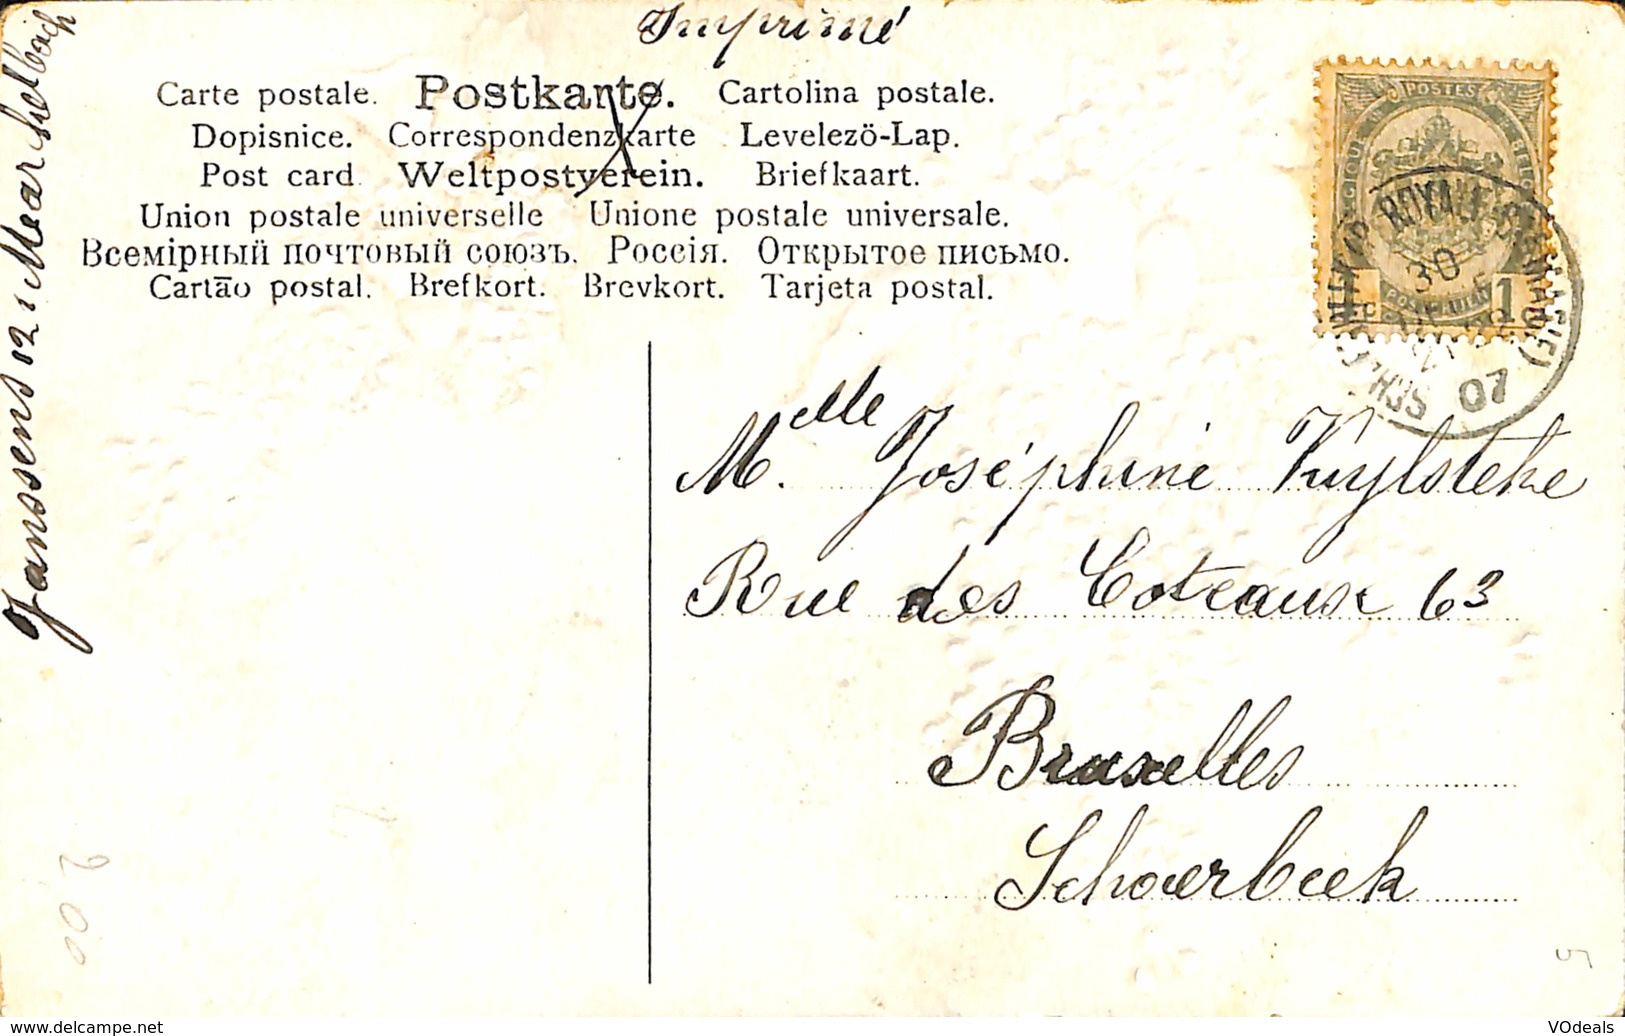 Imprimé
Carte postale. Postkarte. Cartolina postale.
Dopisnice. Correspondenzkarte Levelezö-Lap.
Post card. Weltpostverein. Briefkaart.
Union postale universelle Unione postale universale.
Всемірный почтовый союзъ. Россія. Открытое письмо.
Cartāo postal. Brefkort. Brevkort. Tarjeta postal.
Janssens 12
POSTES
1
ROYALE
30
07
Mlle. Joséphine Kuylsteke
Rue des Coteaux 63
Bruxelles
Schaerbeek
2,00
www.delcampe.net
VOdeals